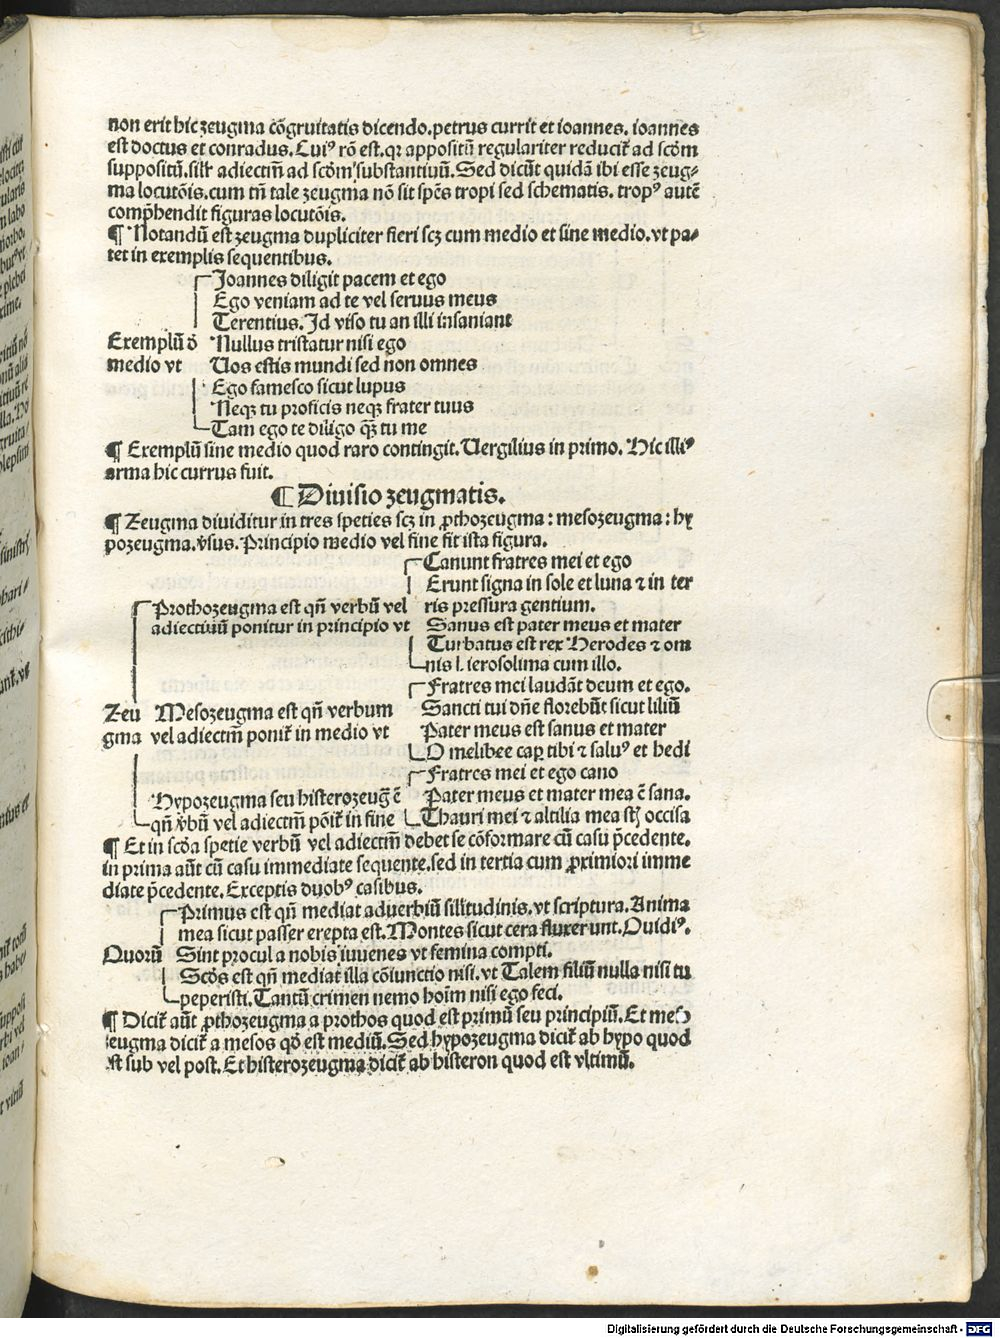 non erit hic zeugma cõgruitatis dicendo. petrus currit et ioannes. ioannes
est doctus et conradus. Cuiꝰ rõ est. qꝛ appositũ regulariter reducit᷑ ad scðm
suppositũ. silr̃ adiectiũ ad scðm substantiuũ. Sed dicũt quidã ibi esse zeug⸗
ma locutõis. cum tñ tale zeugma nõ sit spẽs tropi sed schematis. tropꝰ autẽ
comp̃hendit figuras locutõis.
¶ Notandũ est zeugma dupliciter fieri scꝫ cum medio et sine medio. vt pa⸗
tet in exemplis sequentibus.
Joannes diligit pacem et ego
Ego veniam ad te vel seruus meus
Terentius. Id viso tu an illi insaniant
Exemplũ ð Nullus tristatur nisi ego
medio vt Uos estis mundi sed non omnes
Ego famesco sicut lupus
Neqꝫ tu proficis neqꝫ frater tuus
Tam ego te diligo qꝫ̃ tu me
¶ Exemplũ sine medio quod raro contingit. Uergilius in primo. Hic illiꝰ
arma hic currus fuit.
¶ Diuisio zeugmatis.
¶ Zeugma diuiditur in tres speties scꝫ in ꝓthozeugma: mesozeugma: hy
pozeugma. v̾sus. Principio medio vel fine fit ista figura.
Canunt fratres mei et ego
Erunt signa in sole et luna ⁊ in ter
Prothozeugma est qñ verbũ vel ris pressura gentium.
adiectiuũ ponitur in principio vt Sanus est pater meus et mater
Turbatus est rex Herodes ⁊ om
nis h̾ierosolima cum illo.
Fratres mei laudãt deum et ego.
Zeu Mesozeugma est qñ verbum Sancti tui dñe florebũt sicut liliũ
gma vel adiectiũ ponit᷑ in medio vt Pater meus est sanus et mater
O melibee caꝑ tibi ⁊ saluꝰ et hedi
Fratres mei et ego cano
Hypozeugma seu histerozeug̃ ẽ Pater meus et mater mea ẽ sana.
qñ v̾bũ vel adiectiũ põit᷑ in fine Thauri mei ⁊ altilia mea st̃ occisa
¶ Et in scða spetie verbũ vel adiectiũ debet se cõformare cũ casu p̃cedente.
in prima aũt cũ casu immediate sequente. sed in tertia cum ꝓximiori imme
diate p̃cedente. Exceptis duobꝰ casibus.
Primus est qñ mediat aduerbiũ silitudinis. vt scriptura. Anima
mea sicut passer erepta est. Montes sicut cera fluxerunt. Ouidiꝰ.
Quorũ Sint procul a nobis iuuenes vt femina compti.
Scðs est qñ mediat illa cõiunctio nisi. vt Talem filiũ nulla nisi tu
peperisti. Tantũ crimen nemo hoĩm nisi ego feci.
¶ Dicit᷑ aũt ꝓthozeugma a prothos quod est primũ seu principiũ. Et meso
eugma dicit᷑ a mesos qð est mediũ. Sed hypozeugma dicit᷑ ab hypo quod
st sub vel post. Et histerozeugma dicit᷑ ab histeron quod est vltimũ.
Digitalisierung gefördert durch die Deutsche Forschungsgemeinschaft - DFG